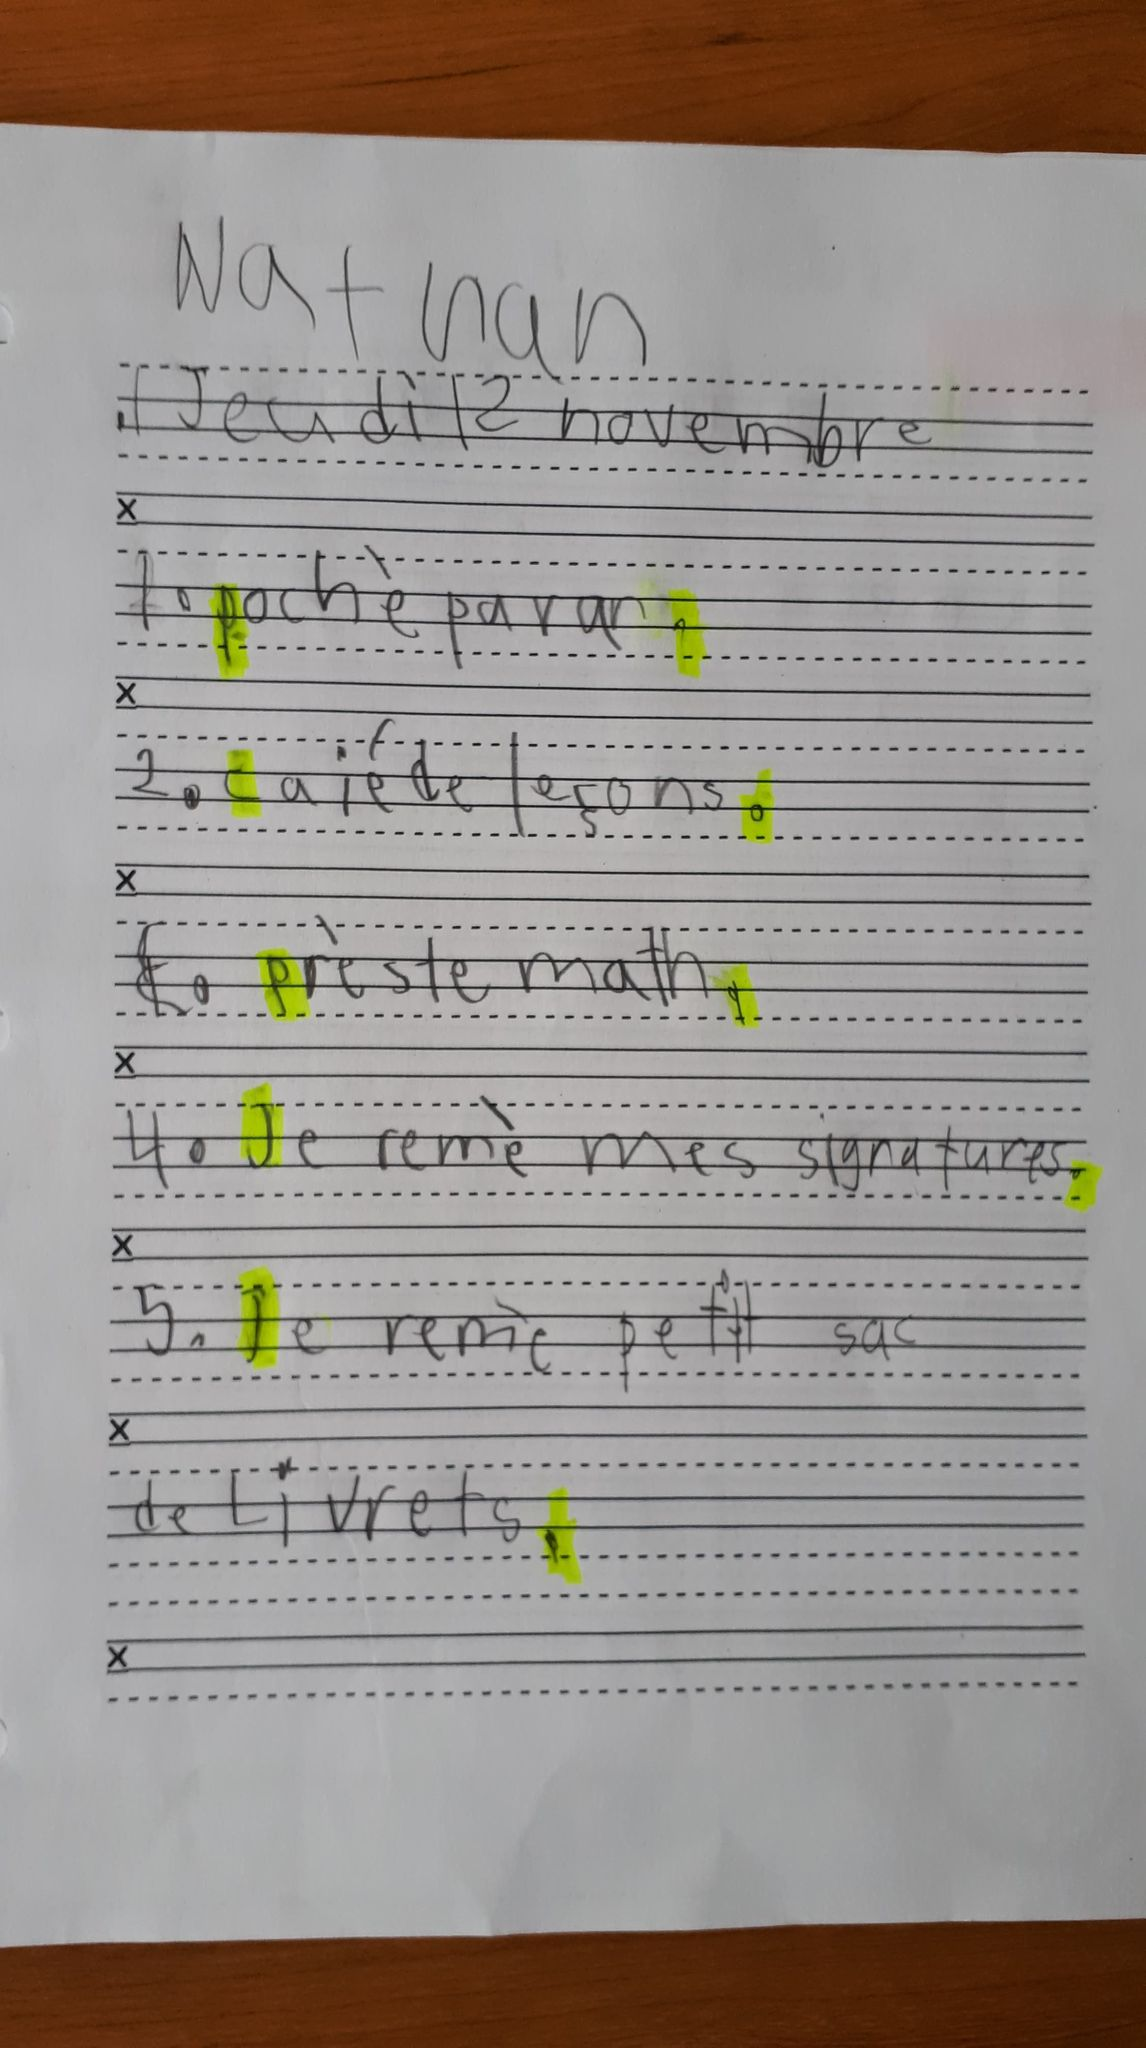 Nathan
Jeudi 12 novembre
x
1. pochè paran.
x
2. caié de leçons.
x
prèste math.
x
4. Je remè mes signatures.
x
5. Je remè petit sac
x
de Livrets.
x